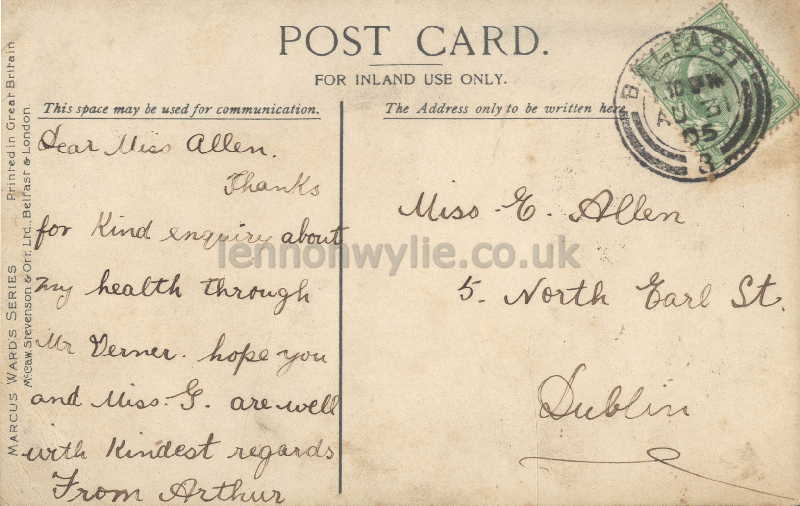 POST CARD.
FOR INLAND USE ONLY.
This space may be used for communication.
Dear Miss Allen.
Thanks
for Kind enquiry about
my health through
Mr Verner. hope you
and Miss. G. are well
with Kindest regards
From Arthur
The Address only to be written here.
Miss. E. Allen
5. North Earl St.
Dublin
BELFAST
AU 31
05
3
MARCUS WARD'S SERIES Printed in Great Britain
McCaw, Stevenson & Orr, Ltd., Belfast & London.
lennonwylie.co.uk